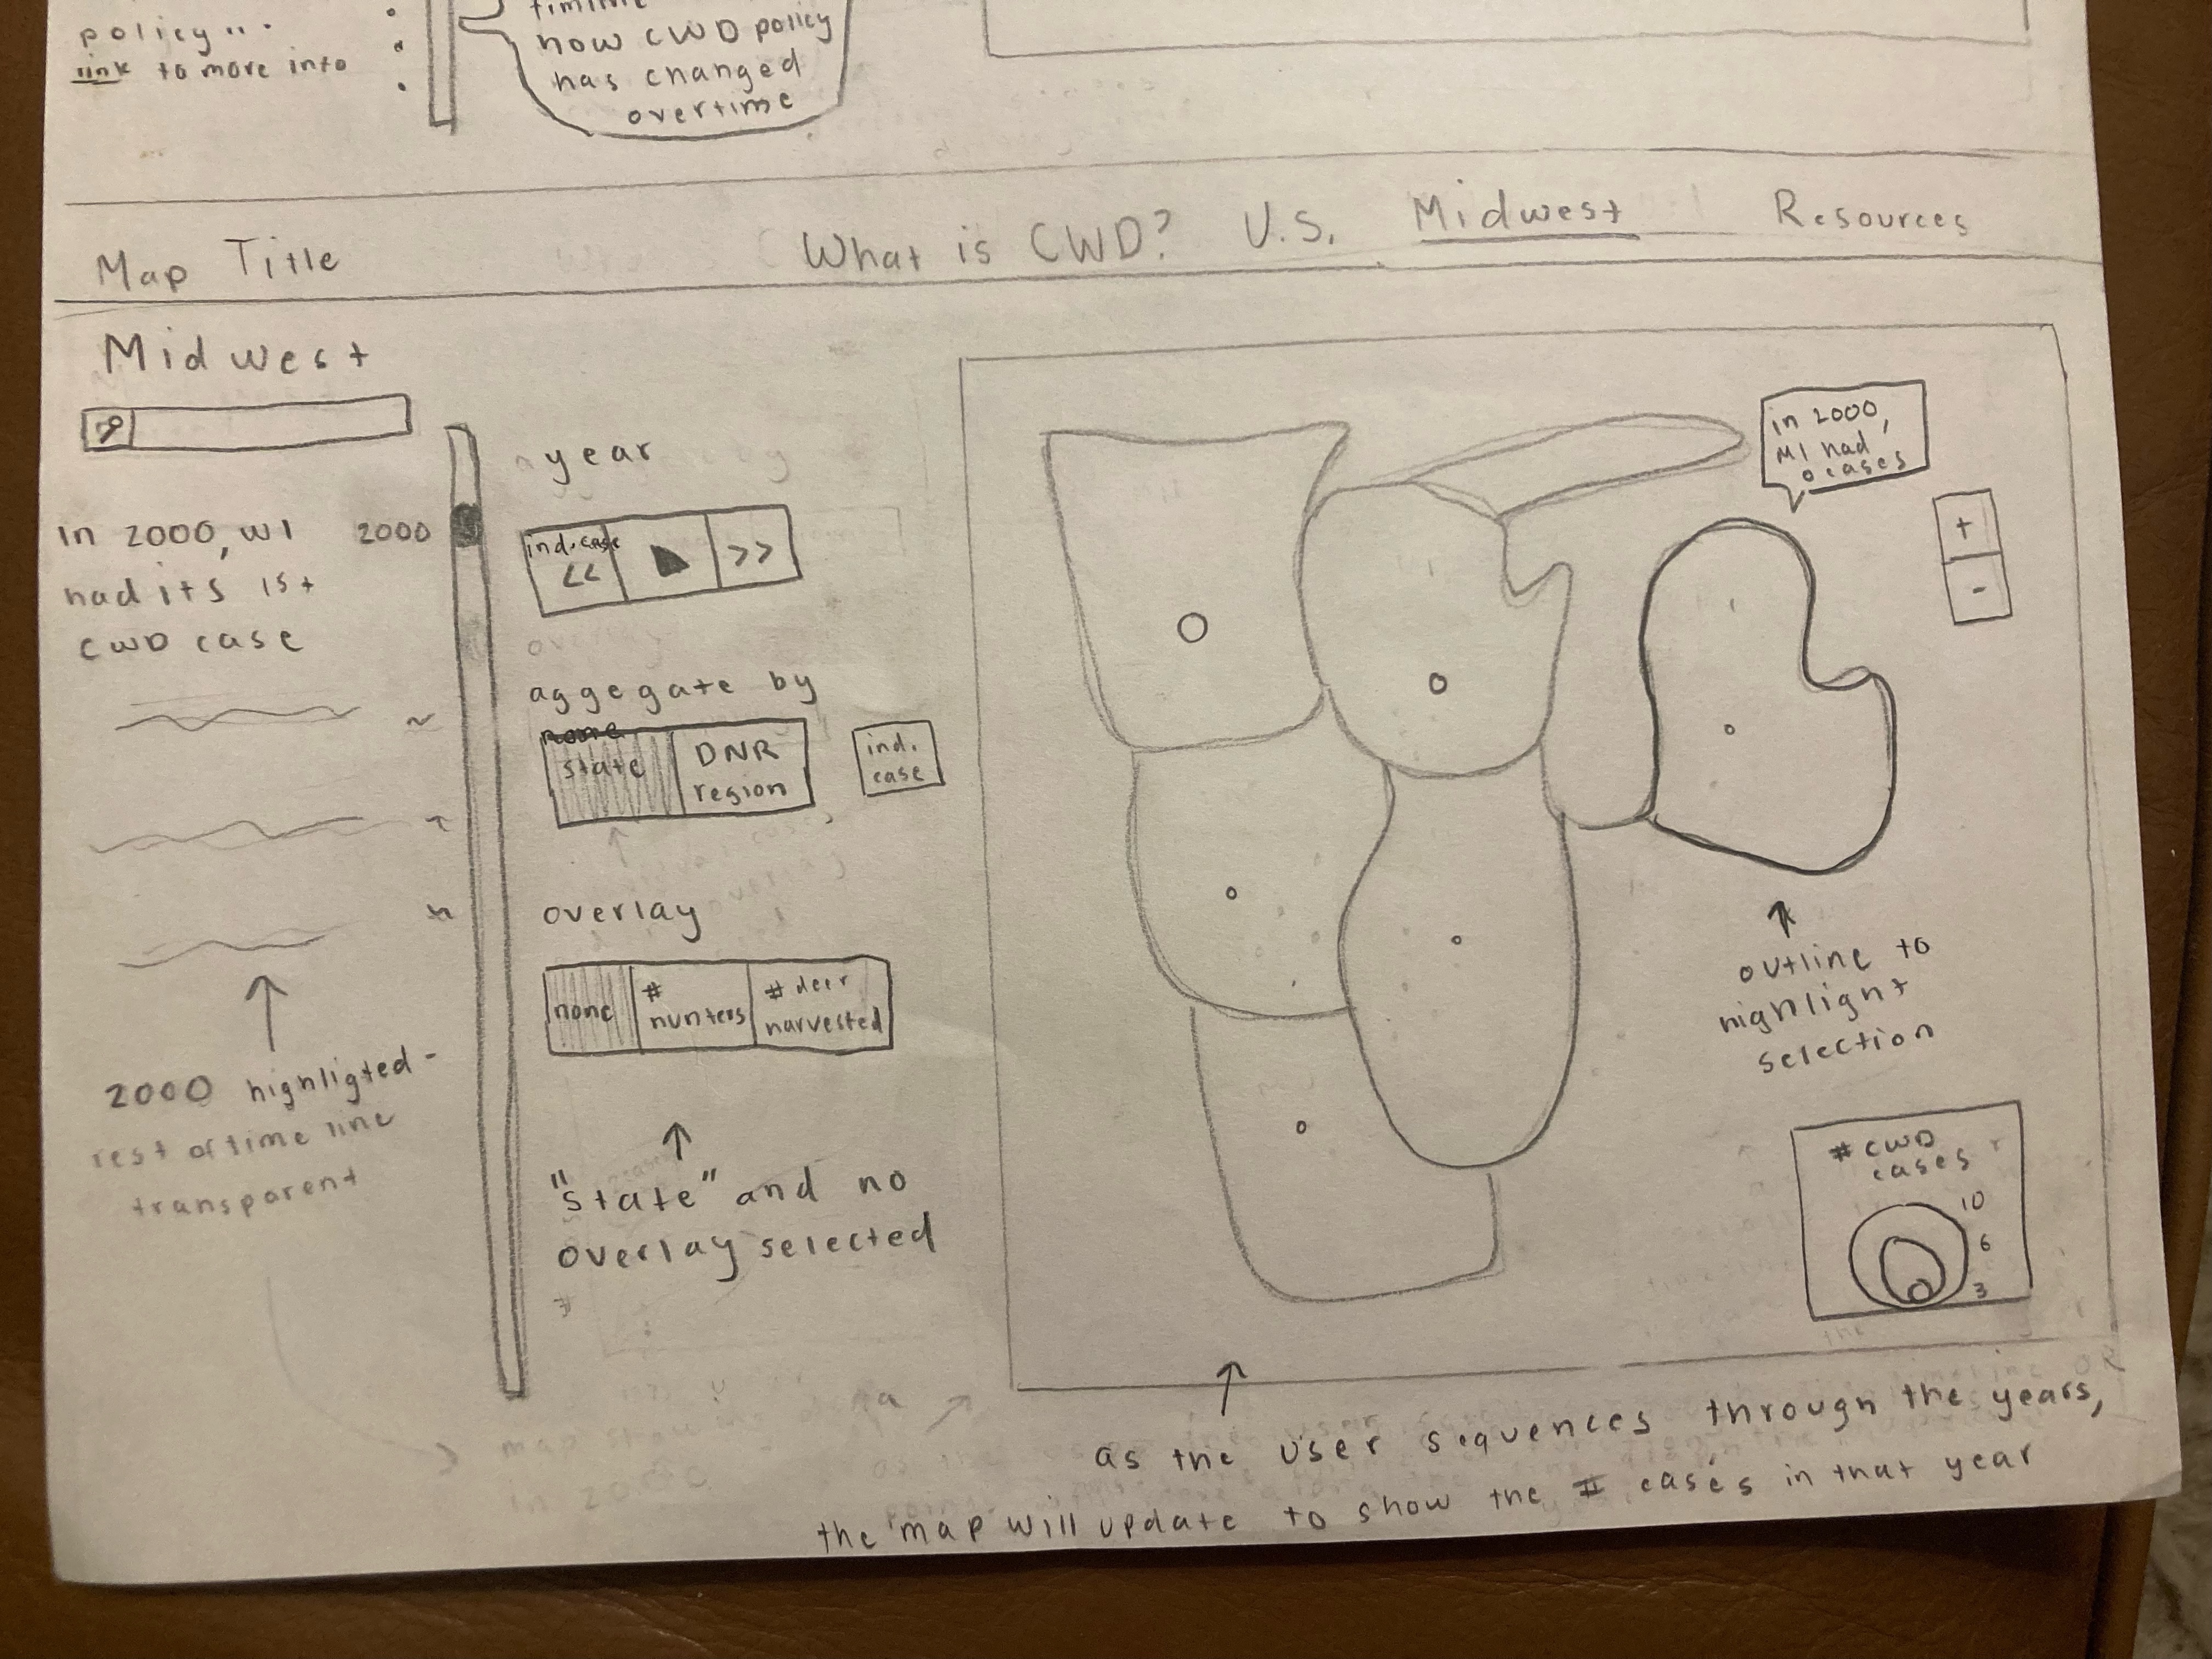 policy...
link to more info
how CWD policy
has changed
overtime
Map Title
What is CWD?
U.S.
Midwest
Resources
Midwest
In 2000, WI
had its 1st
CWD case
2000
2000 highligted -
rest of time line
transparent
year
ind. case
<<
>>
aggegate by
state
DNR
region
ind.
case
overlay
none
#
hunters
# deer
harvested
"state" and no
overlay selected
#
in 2000,
MI had
0 cases
+
-
outline to
highlight
selection
# CWD
cases
10
6
3
as the user sequences through the years,
the map will update to show the # cases in that year
map showing data
in 2000